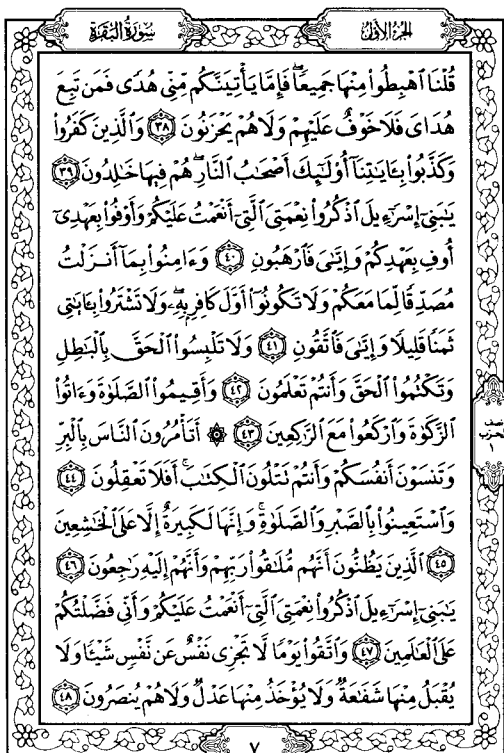 سُورَةُ الْبَقَرَةِ
الجُزْءُ الأوَّلُ
قُلْنَا ٱهْبِطُوا۟ مِنْهَا جَمِيعًۭا ۖ فَإِمَّا يَأْتِيَنَّكُم مِّنِّى هُدًۭى فَمَن تَبِعَ
هُدَاىَ فَلَا خَوْفٌ عَلَيْهِمْ وَلَا هُمْ يَحْزَنُونَ ٣٨ وَٱلَّذِينَ كَفَرُوا۟
وَكَذَّبُوا۟ بِـَٔايَـٰتِنَآ أُو۟لَـٰٓئِكَ أَصْحَـٰبُ ٱلنَّارِ ۖ هُمْ فِيهَا خَـٰلِدُونَ ٣٩
يَـٰبَنِىٓ إِسْرَٰٓءِيلَ ٱذْكُرُوا۟ نِعْمَتِىَ ٱلَّتِىٓ أَنْعَمْتُ عَلَيْكُمْ وَأَوْفُوا۟ بِعَهْدِىٓ
أُوفِ بِعَهْدِكُمْ وَإِيَّـٰىَ فَٱرْهَبُونِ ٤٠ وَءَامِنُوا۟ بِمَآ أَنزَلْتُ
مُصَدِّقًۭا لِّمَا مَعَكُمْ وَلَا تَكُونُوٓا۟ أَوَّلَ كَافِرٍۭ بِهِۦ ۖ وَلَا تَشْتَرُوا۟ بِـَٔايَـٰتِى
ثَمَنًۭا قَلِيلًۭا وَإِيَّـٰىَ فَٱتَّقُونِ ٤١ وَلَا تَلْبِسُوا۟ ٱلْحَقَّ بِٱلْبَـٰطِلِ
وَتَكْتُمُوا۟ ٱلْحَقَّ وَأَنتُمْ تَعْلَمُونَ ٤٢ وَأَقِيمُوا۟ ٱلصَّلَوٰةَ وَءَاتُوا۟
ٱلزَّكَوٰةَ وَٱرْكَعُوا۟ مَعَ ٱلرَّٰكِعِينَ ٤٣ ۞ أَتَأْمُرُونَ ٱلنَّاسَ بِٱلْبِرِّ
وَتَنسَوْنَ أَنفُسَكُمْ وَأَنتُمْ تَتْلُونَ ٱلْكِتَـٰبَ ۚ أَفَلَا تَعْقِلُونَ ٤٤
وَٱسْتَعِينُوا۟ بِٱلصَّبْرِ وَٱلصَّلَوٰةِ ۚ وَإِنَّهَا لَكَبِيرَةٌ إِلَّا عَلَى ٱلْخَـٰشِعِينَ
٤٥ ٱلَّذِينَ يَظُنُّونَ أَنَّهُم مُّلَـٰقُوا۟ رَبِّهِمْ وَأَنَّهُمْ إِلَيْهِ رَٰجِعُونَ ٤٦
يَـٰبَنِىٓ إِسْرَٰٓءِيلَ ٱذْكُرُوا۟ نِعْمَتِىَ ٱلَّتِىٓ أَنْعَمْتُ عَلَيْكُمْ وَأَنِّى فَضَّلْتُكُمْ
عَلَى ٱلْعَـٰلَمِينَ ٤٧ وَٱتَّقُوا۟ يَوْمًۭا لَّا تَجْزِى نَفْسٌ عَن نَّفْسٍۢ شَيْـًۭٔا وَلَا
يُقْبَلُ مِنْهَا شَفَـٰعَةٌۭ وَلَا يُؤْخَذُ مِنْهَا عَدْلٌۭ وَلَا هُمْ يُنصَرُونَ ٤٨
نصف
الحزب
١
٧